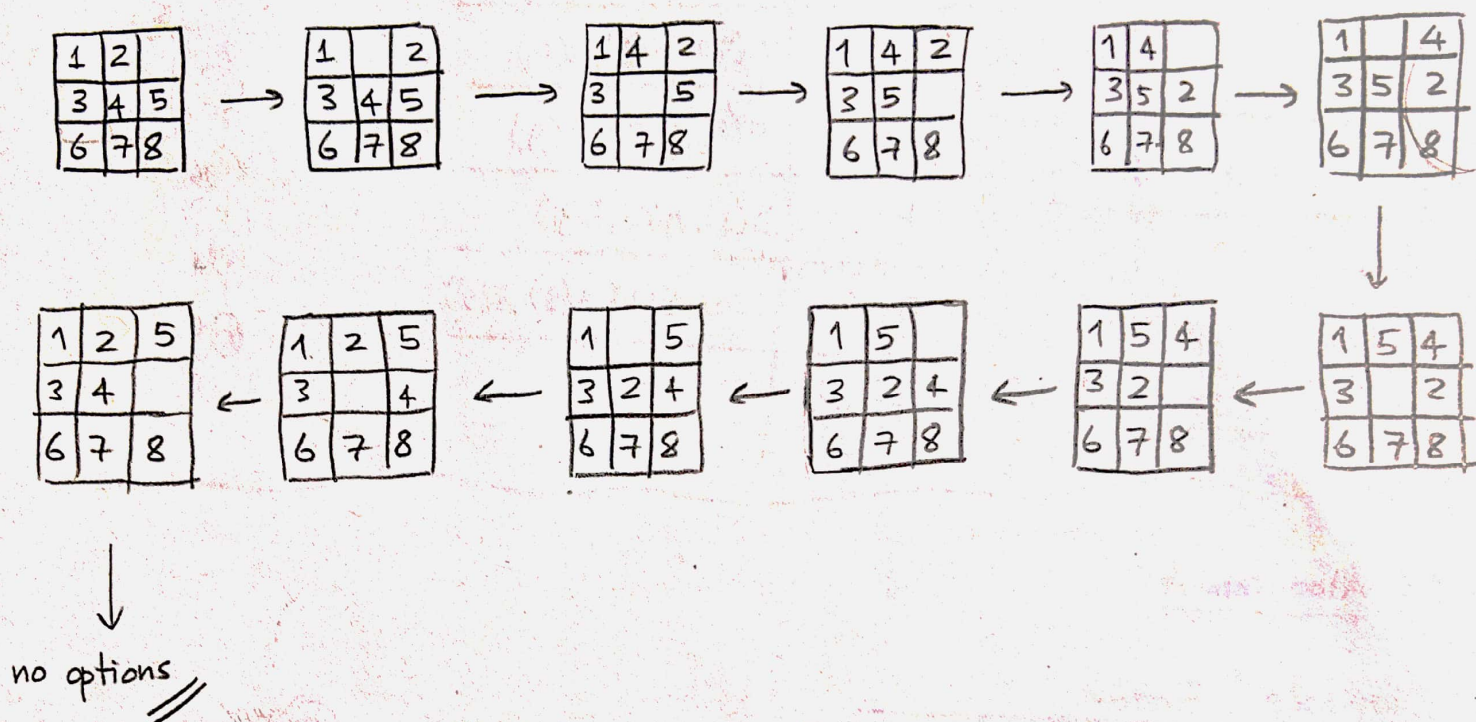 1 2
3 4 5
6 7 8
1 2
3 4 5
6 7 8
1 4 2
3 5
6 7 8
1 4 2
3 5
6 7 8
1 4
3 5 2
6 7 8
1 4
3 5 2
6 7 8
1 2 5
3 4
6 7 8
1 2 5
3 4
6 7 8
1 5
3 2 4
6 7 8
1 5
3 2 4
6 7 8
1 5 4
3 2
6 7 8
1 5 4
3 2
6 7 8
no options